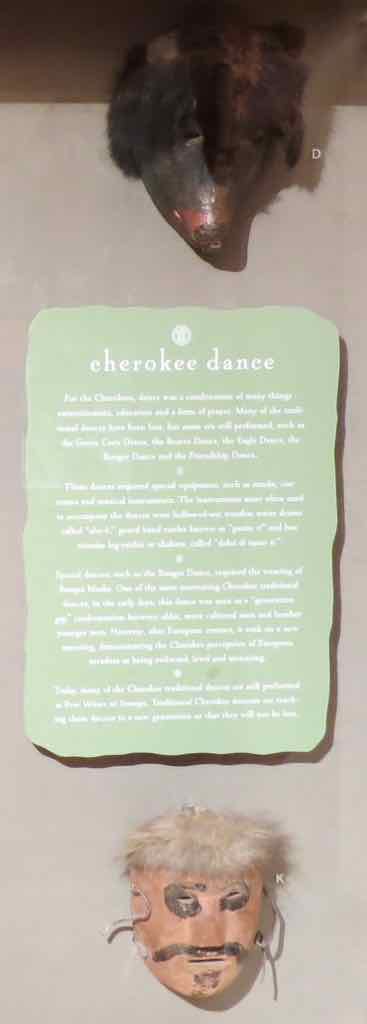 D
cherokee dance
For the Cherokees, dance was a combination of many things -
entertainment, education and a form of prayer. Many of the tradi-
tional dances have been lost, but some are still performed, such as
the Green Corn Dance, the Beaver Dance, the Eagle Dance, the
Booger Dance and the Friendship Dance.
These dances required special equipment, such as masks, cos-
tumes and musical instruments. The instruments most often used
to accompany the dances were hollowed-out wooden water drums
called gourd hand rattles known as and box
turtle leg-rattles or shakers, called
Special dances, such as the Booger Dance, required the wearing of
Booger Masks. One of the most interesting Cherokee traditional
dances, in the early days, this dance was seen as a "generation
gap" confrontation between older, more cultured men and brasher
younger men. However, after European contact, it took on a new
meaning, demonstrating the Cherokee perception of European
invaders as being awkward, lewd and menacing.
Today, many of the Cherokee traditional dances are still performed
at Pow Wows or Stomps. Traditional Cherokee dancers are teach-
ing these dances to a new generation so that they will not be lost.
K